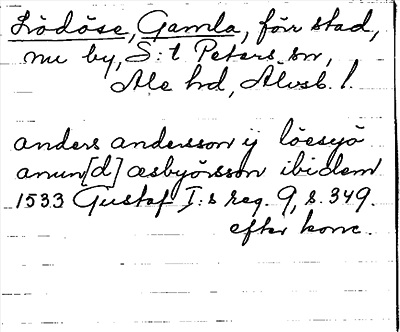 Lödöse, Gamla, förr stad,
nu by, S:t Peters sn,
Ale hd, Älvsb. l.
anders andersson ij löesyö
anun[d] æsbyörsson ibidem
1533 Gustaf I:s reg. 9, s. 349.
efter konc.